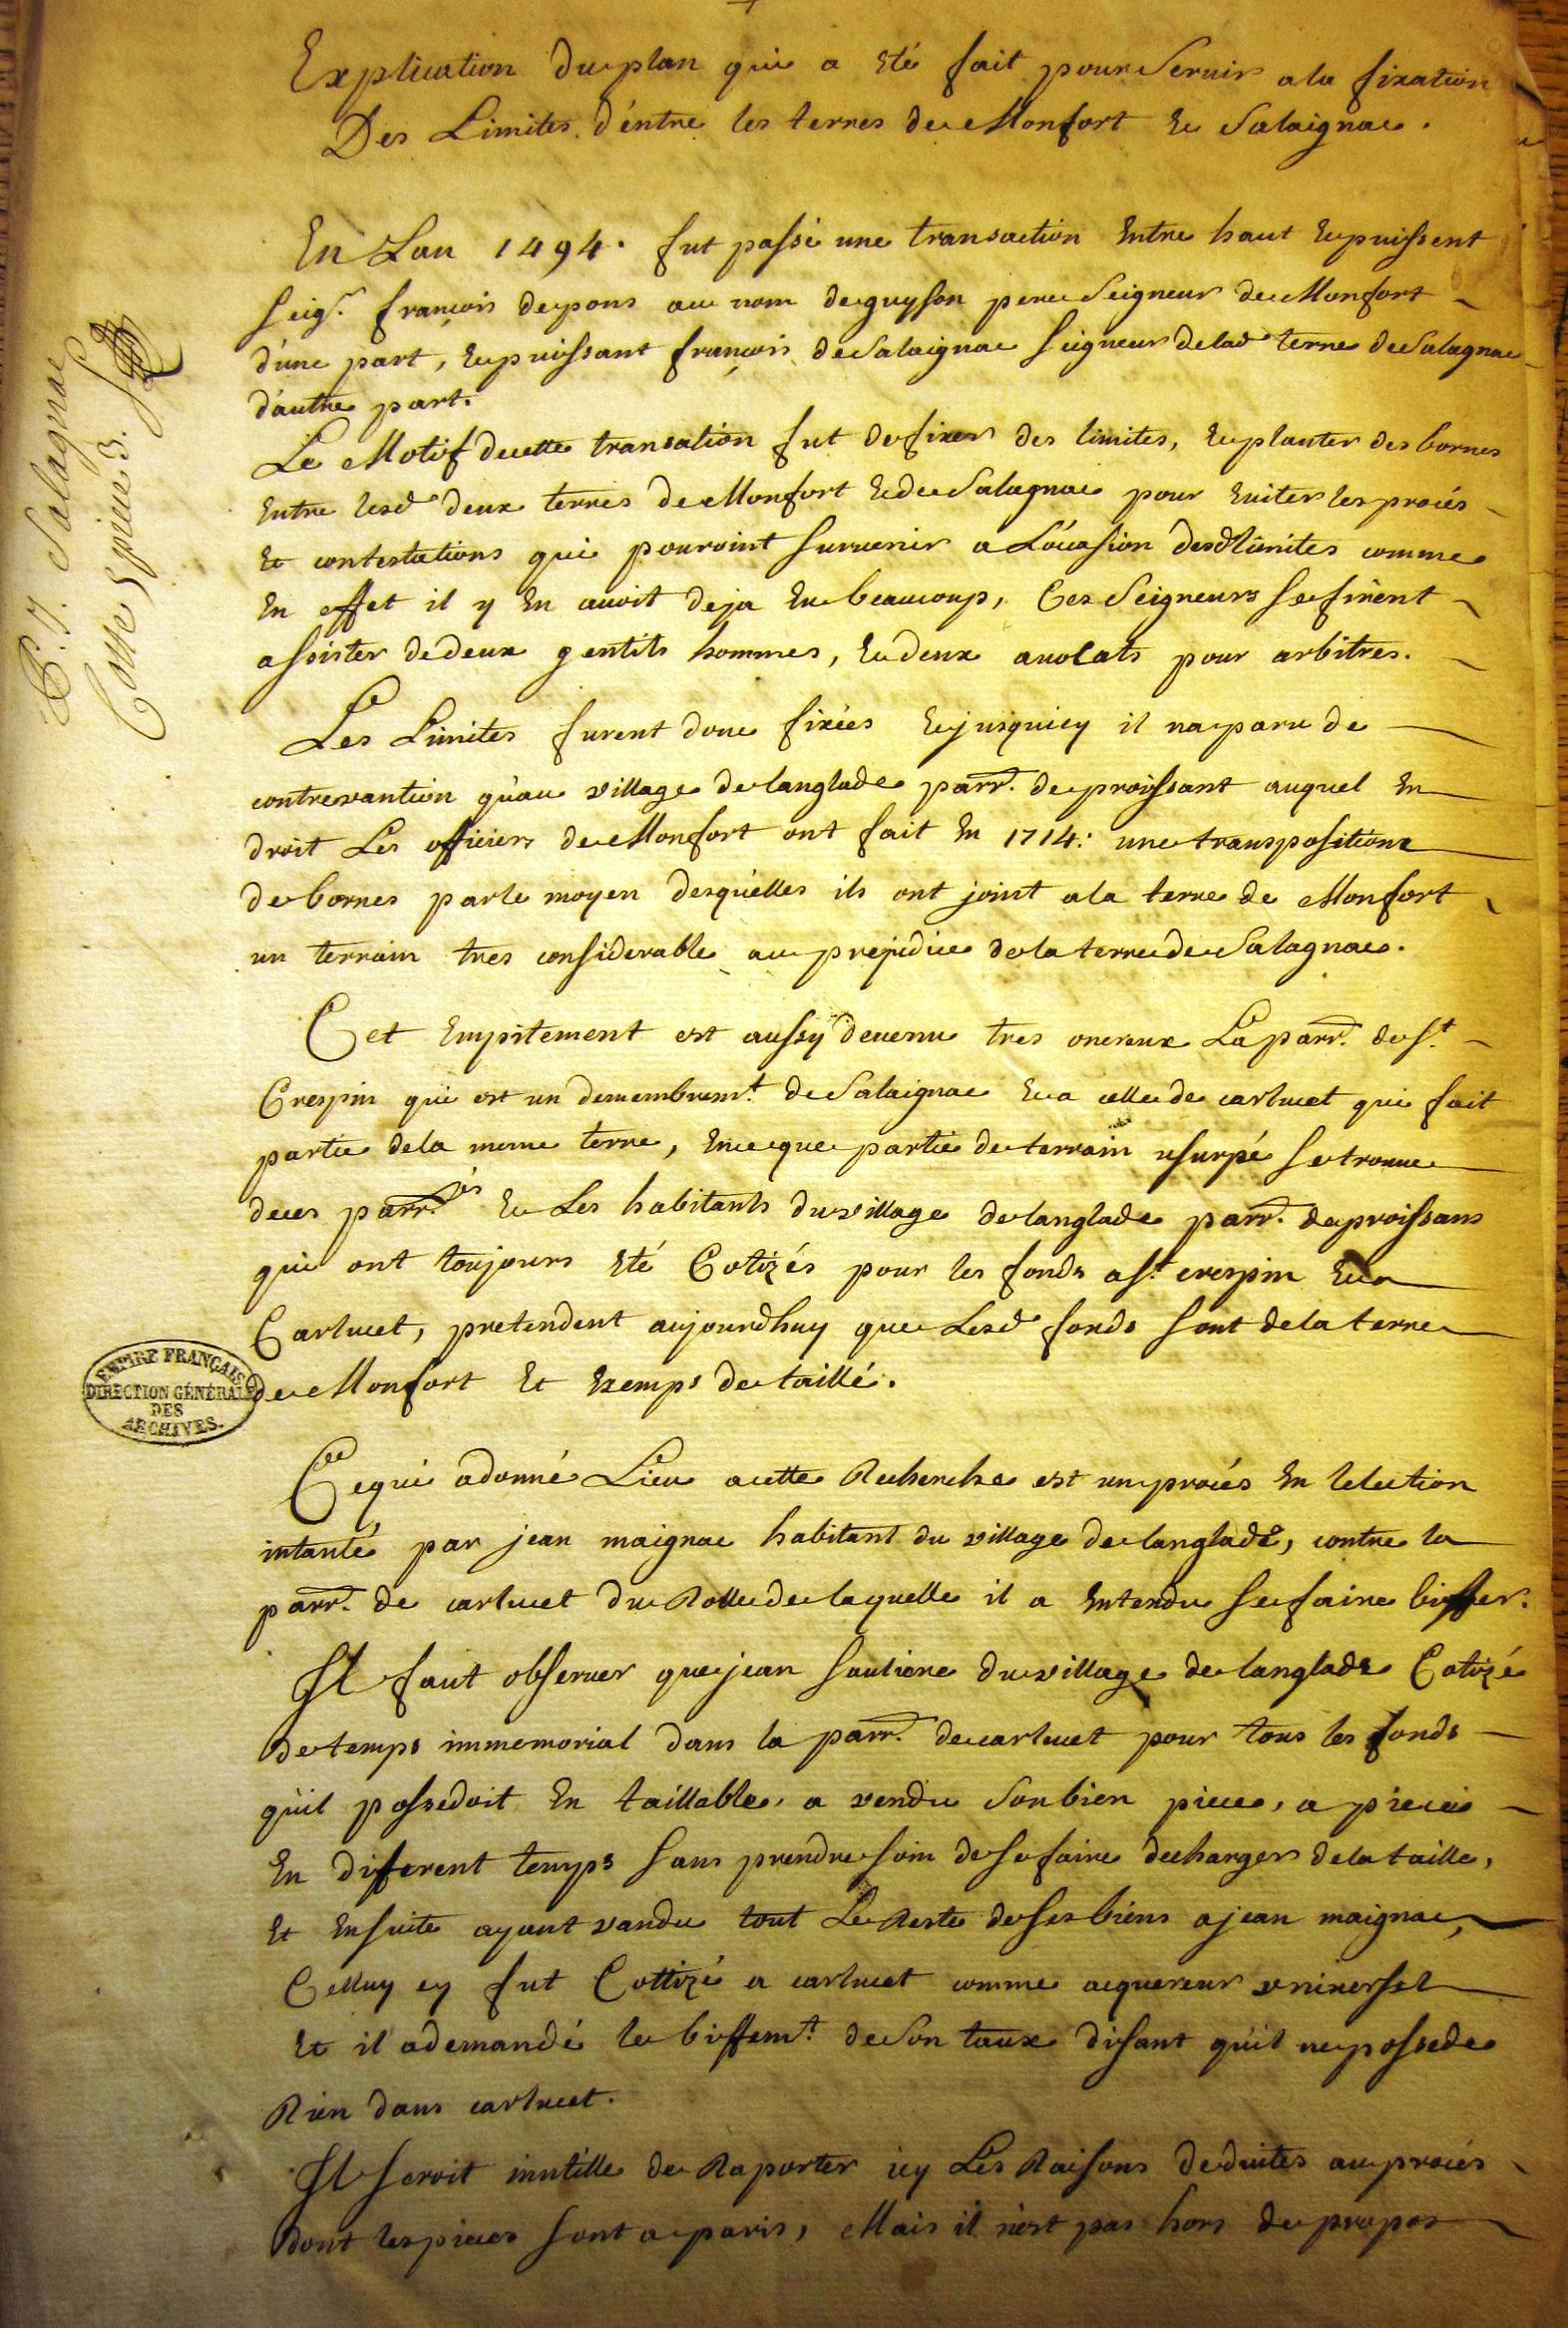 Explication du plan qui a eté fait pour servir a la fixation
Des Limites d'entre les terres de Monfort et Salaignac.
En Lan 1494. fut passé une transaction Entre haut et puissent
seigr. françois de pons au nom de guy son pere seigneur de Monfort
d'une part, et puissant françois de Salaignac seigneur de lad terre de Salagnac
d'autre part.
Le Motif de cette transation fut de fixer des limites, et planter des bornes
Entre lesd deux terres de Monfort et de Salagnac pour Eviter les procés
Et contestations qui pouroint survenir a L'ocasion desd limites comme
En effet il y En avoit deja Eu beaucoup, Ces Seigneurs se firent
assister de deux gentils hommes, et deux avocats pour arbitres.
Les Limites furent donc fixées et jusquicy il na paru de
contrevantion qu'au village de langlade parr. de proissant auquel En
droit Les officiers de Monfort ont fait En 1714: une transposition
de bornes par le moyen desquelles ils ont joint a la terre de Monfort
un terrain tres considerable au prejudice de la terre de Salagnac.
Cet Empitement est aussy devenu tres onereux La parr. de st.
Crespin qui est un demembremt. de Salaignac et a celle de carlucet qui fait
partie de la meme terre, En ce que partie de terrain usurpé se trouve
de ces parr.es et Les habitants du village de langlade parr. de proissans
qui ont toujours eté Cotizés pour les fonds a st. crespin et a
Carlucet, pretendent aujourdhuy que Lesd fonds sont de la terre
de Monfort Et Exemps de taille.
Ce qui a donné Lieu a cette Recherche est un procés En lelection
intanté par jean maignac habitant du village de langlade, contre la
parr. de carlucet du Rolle de laquelle il a Entendu se faire biffer.
Il faut observer que jean souliere du village de langlade Cotizé
de temps immemorial dans la parr. de carlucet pour tous les fonds
qu'il possedoit En taillable, a vendu son bien piece, a piece
En diferent temps sans prendre soin de se faire decharger de la taille,
Et Ensuite ayant vandu tout Le Reste de ses biens a jean maignac,
Celluy cy fut Cottizé a carlucet comme aquereur universel
Et il a demandé le biffemt. de son taux disant qu'il ne possede
Rien dans carlucet.
Il seroit inutille de Raporter icy Les Raisons deduites au procés
dont les pieces sont a paris, Mais il n'est pas hors de propos
Salagnac
Cotte 5 piece 3.
EMPIRE FRANÇAIS
DIRECTION GÉNÉRALE
DES
ARCHIVES.